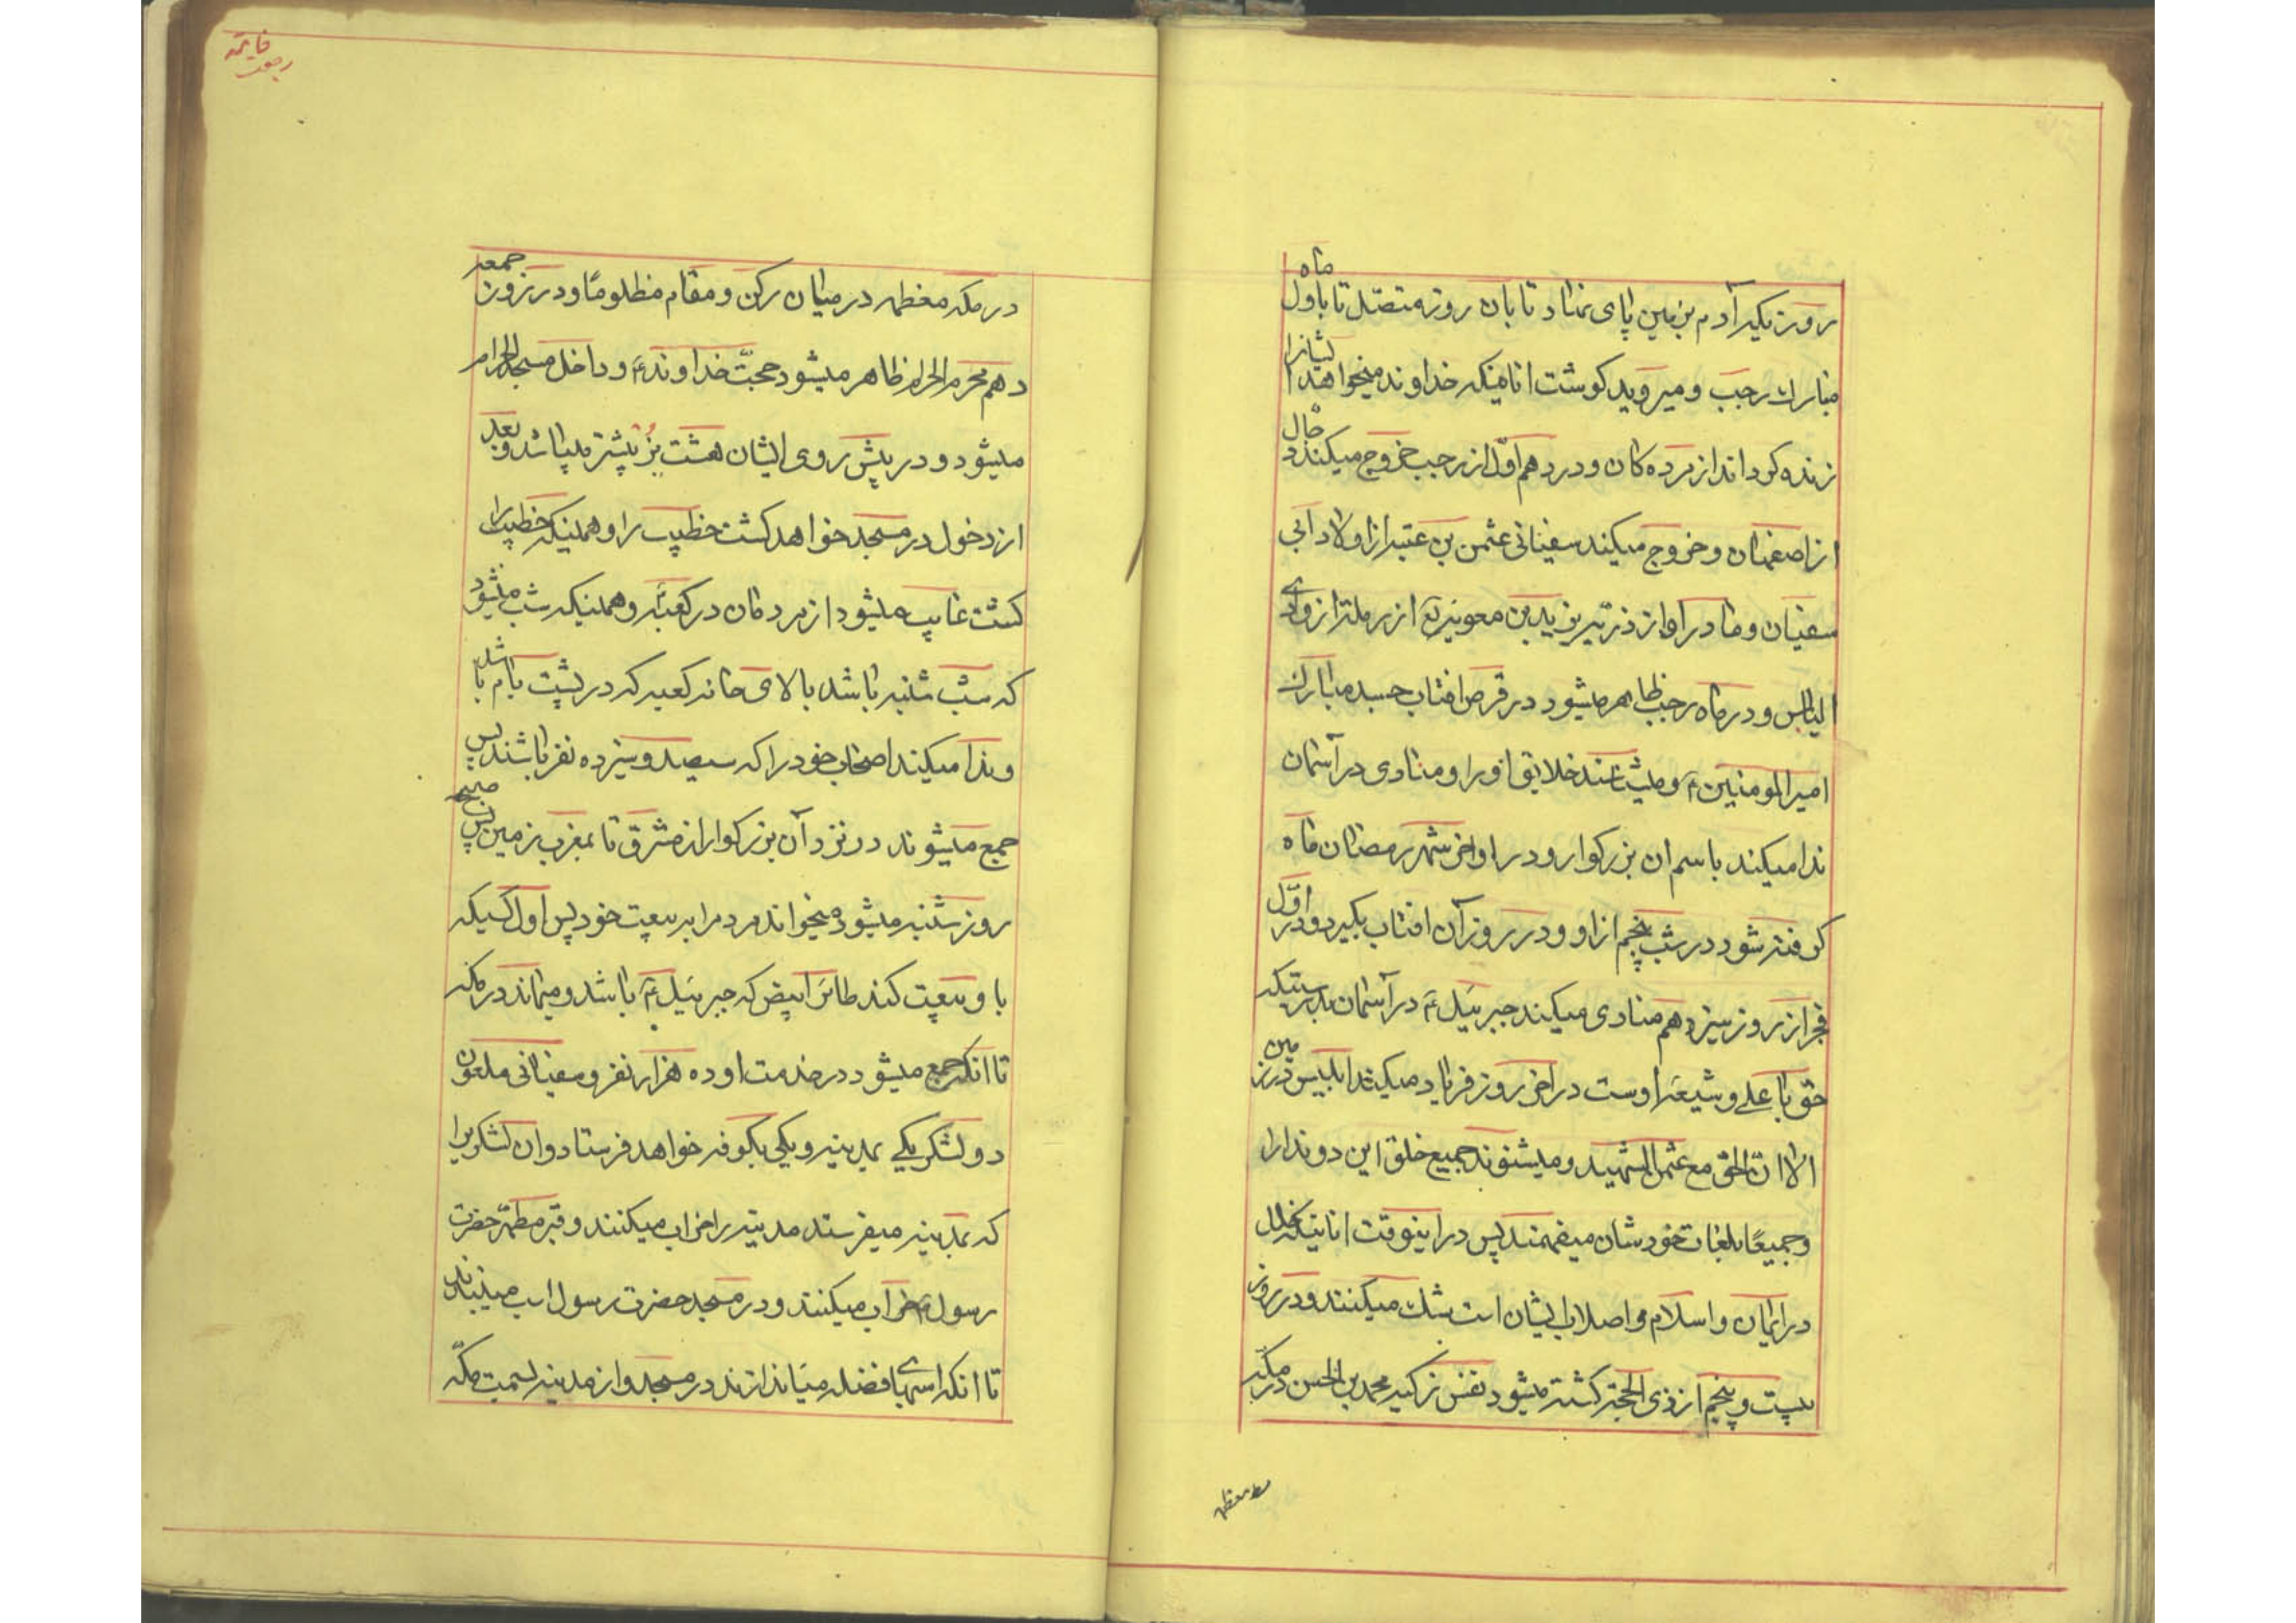 روزیکه آدم بزمین پای نهاد تا بان روز متصل تا باول ماه
مبارك رجب و میروید کوشت انانیکه خداوند میخواهد ایشانرا
زنده کرداند از مرده کان و در دهم اول از رجب خروج میکند دجال
از اصفهان و خروج میکند سفیانی عثمن بن عتبه از اولاد ابی
سفیان و مادر او از ذریه یزید بن معویه از رمله از وادی
الیابس و در ماه رجب ظاهر میشود در قرص افتاب جسد مبارك
امیرالمومنین ؏ و میشناسند خلایق اورا و منادی در آسمان
ندا میکند باسم ان بزرکوار و در اواخر شهر رمضان ماه
کرفته شود در شب پنجم از او و در روز آن افتاب بکیرد و در اول
فجر از روز سیزدهم منادی میکند جبرئیل ؏ در آسمان بدرستیکه
حق با علی و شیعه اوست در اخر روز فریاد میکند ابلیس در زمین
الا ان الحق مع عثمن الشهید و میشنوند جمیع خلق این دو ندا را
و جمیعا بلغات خودشان میفهمند پس در اینوقت انانیکه خلل
در ایمان و اسلام و اصلاب ایشان است شك میکنند و در روز
بیست و پنجم از ذی الحجه کشته میشود نفس زکیه محمد بن الحسن در مکه
در مکه معظمه در میان رکن و مقام مظلوما و در روز جمعه
دهم محرم الحرام ظاهر میشود حجت خداوند ؏ و داخل مسجد الحرام
میشود و در پیش روی ایشان هشت بز پیشتر میباشد و بعد
از دخول در مسجد خواهد کشت خطیب را و همینکه خطیب را
کشت غایب میشود از مردمان در کعبه و همینکه شب میشود
که شب شنبه باشد بالای خانه کعبه که در پشت بام باشد
و ندا میکند اصحاب خود را که سیصد و سیزده نفر باشند پس
جمع میشوند در نزد آن بزرکوار از مشرق تا بمغرب زمین پس صبح
روز شنبه میشود میخواند مردم را به بیعت خود پس اول کسیکه
با و بیعت کند طائر ابیض که جبرئیل ؏ باشد و میماند در مکه
تا انکه جمع میشود در خدمت او ده هزار نفر و سفیانی ملعون
دو لشکر یکی بمدینه و یکی بکوفه خواهد فرستاد و ان لشکریرا
که بمدینه میفرستد مدینه را خراب میکنند و قبر مطهر حضرت
رسول را خراب میکنند و در مسجد حضرت رسول اسب میبندند
تا انکه اسبها فضله میاندازند در مسجد و از مدینه بسمت مکه